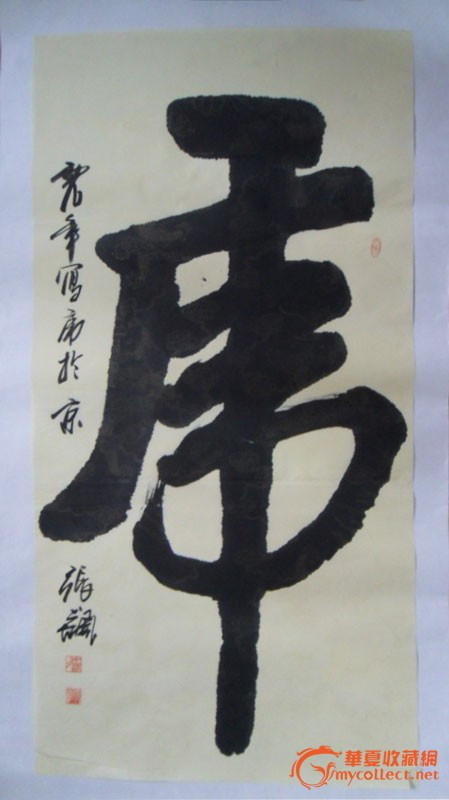 虎
年寫虎於京
張
華夏收藏網
mycollect.net